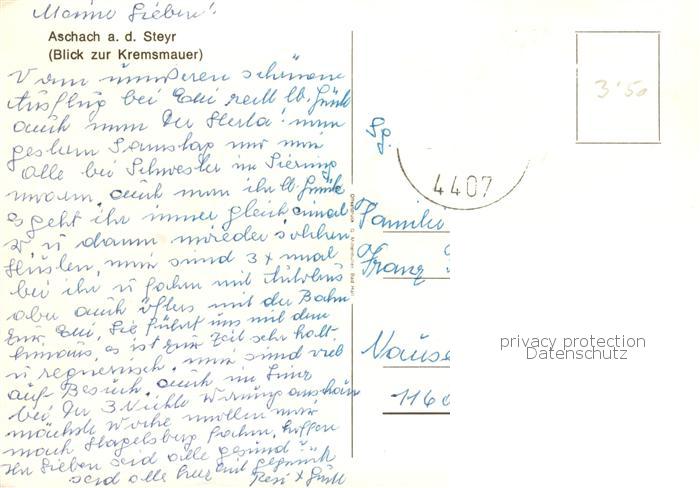 Meine Lieben!
Aschach a. d. Steyr
(Blick zur Kremsmauer)
Vom unseren schönen
Ausflug bei Edi recht lb. Grüße
auch von der Herta!
gestern Samstag wir
alle bei Schwester in Sierning
waren, auch von ihr lb. Grüße
es geht ihr immer gleich einmal
u dann wieder solchen
Husten, wir sind 3 x mal
bei ihr u fahrn mit Autobus
aber auch öfters mit der Bahn
zur Edi, Sie führt uns mit dem
hinaus, es ist zur Zeit sehr kalt
u regnerisch. wir sind viel
auf Besuch, auch in Linz
bei der 3 Nichte Wohnung anschaun
nächste Woche wollen wir
nach fahrn, hoffen
Ihr Lieben seid alle gesund!
seid alle herz mit gegrüßt
Resi + Gustl
Sg.
Familie
Franz
1160
4407
3'50
privacy protection
Datenschutz